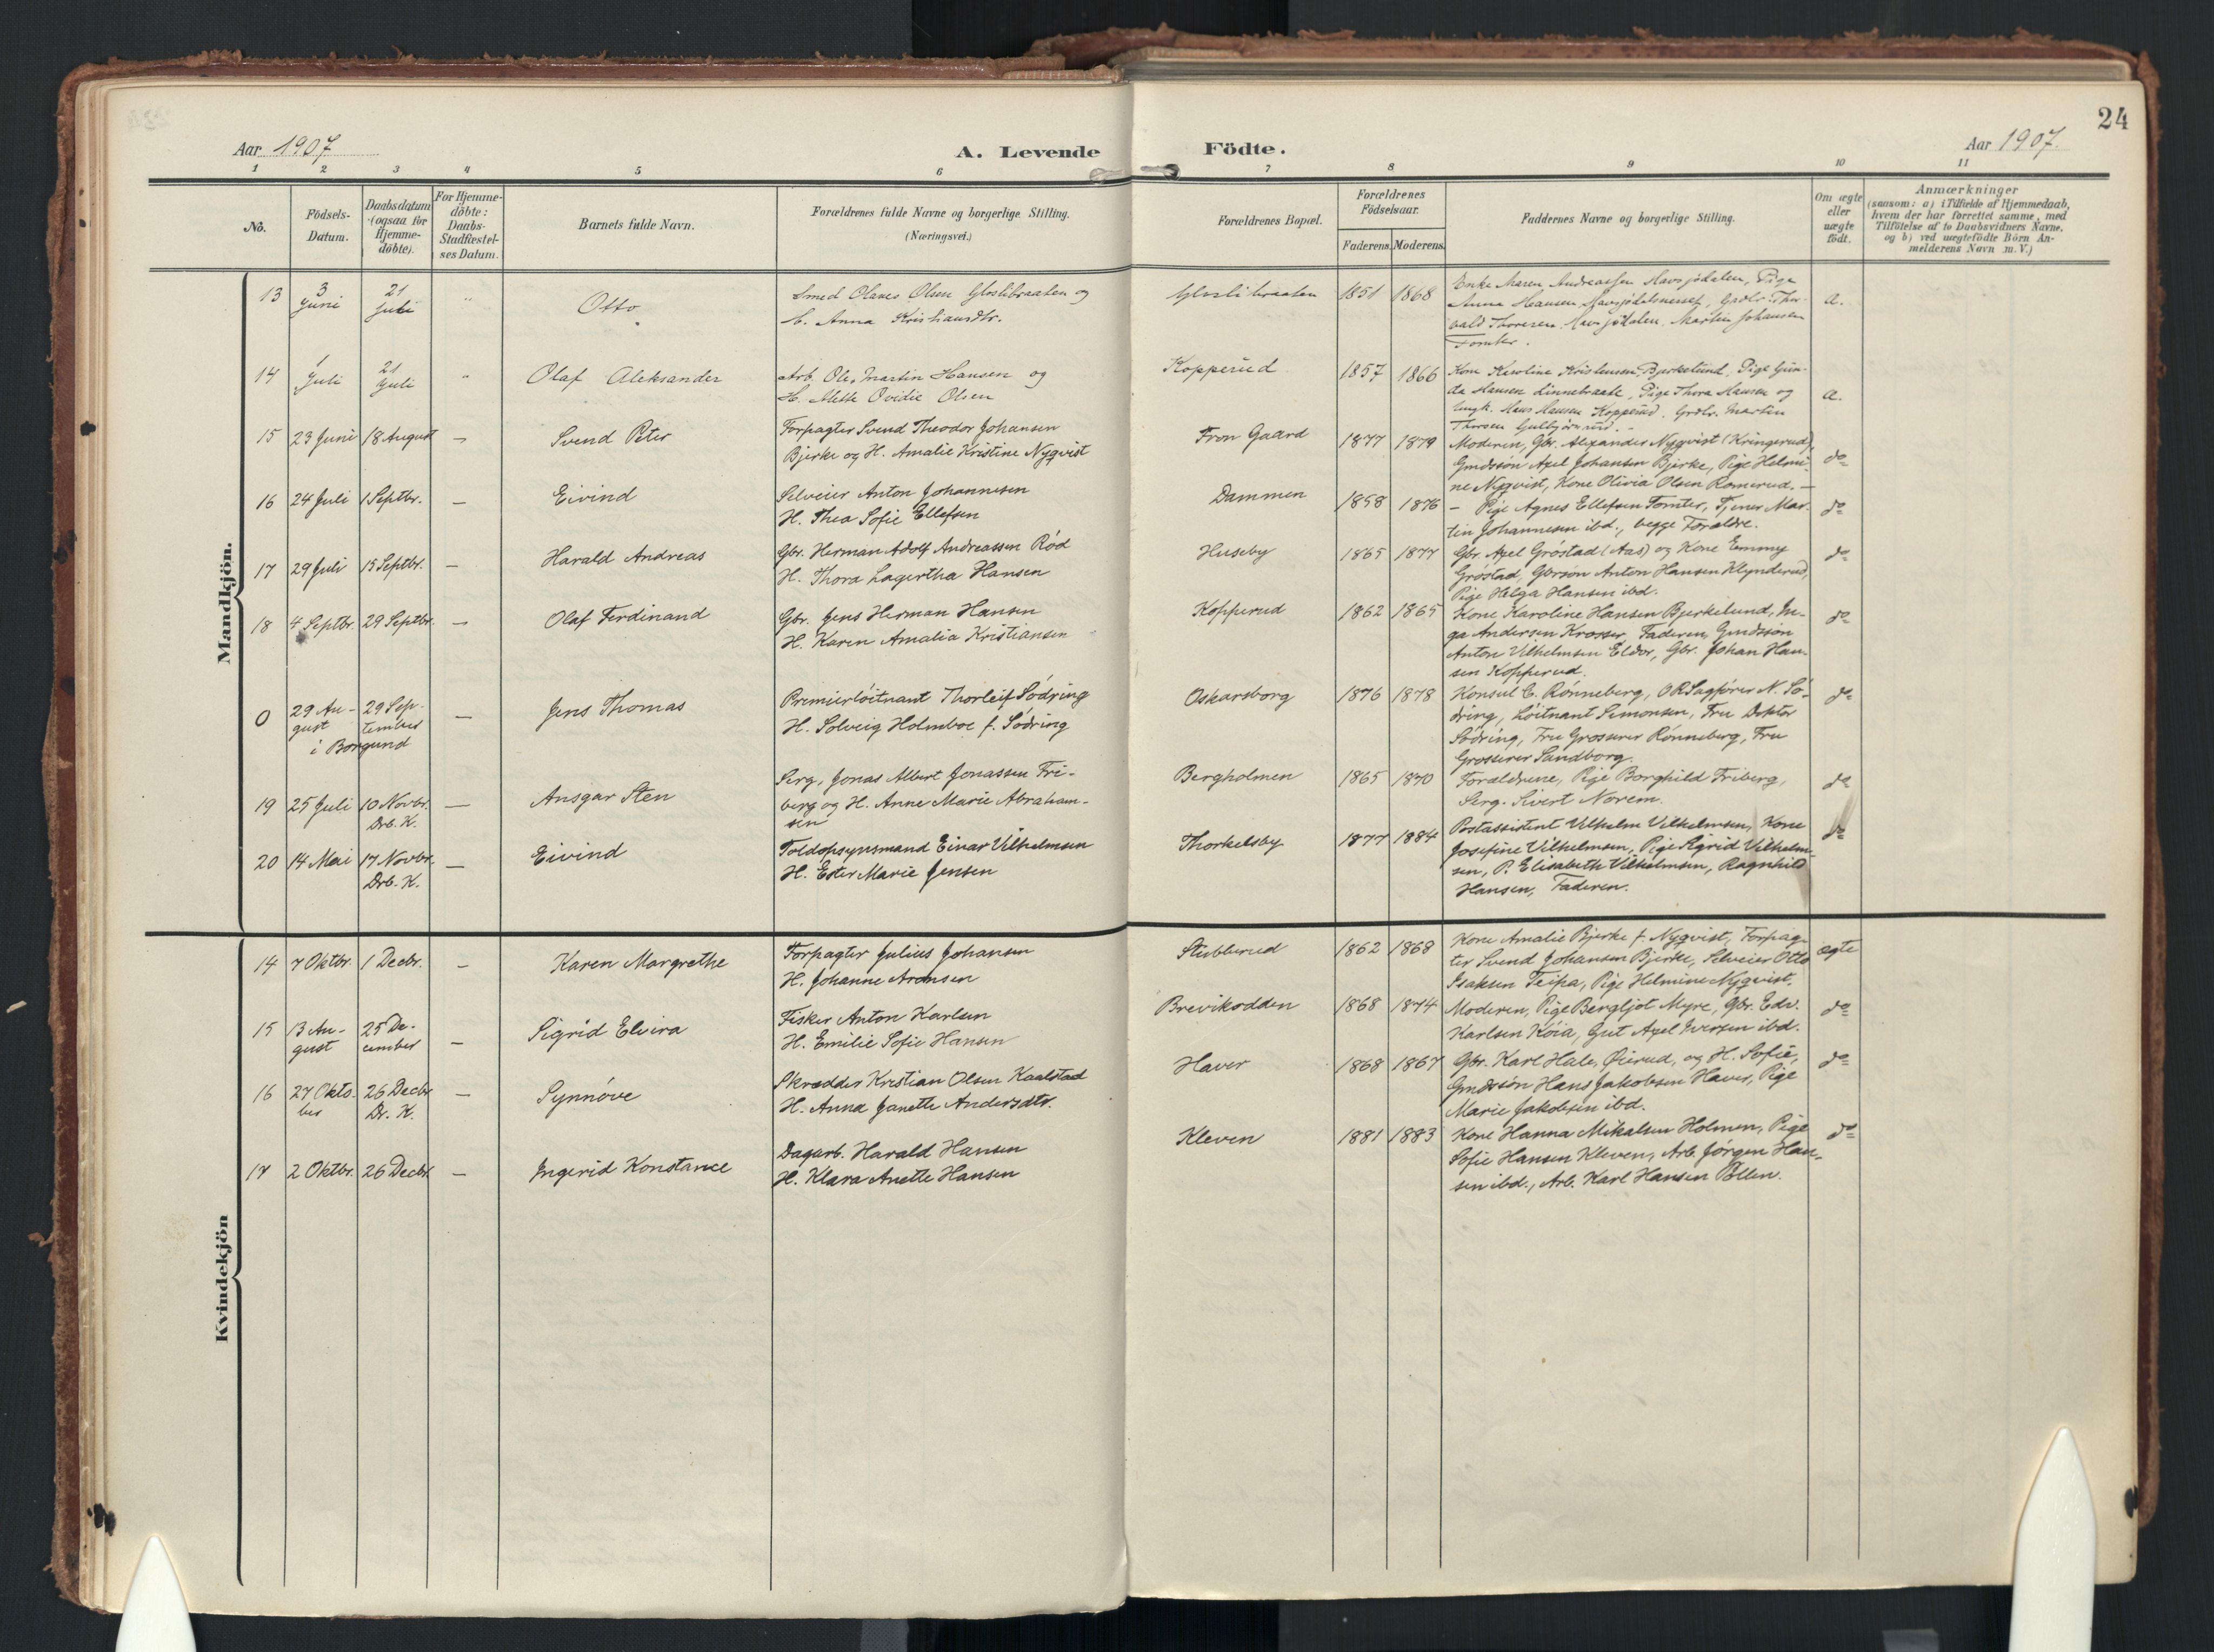 24
Aar 1907
A. Levende
Födte.
Aar 1907.
1 2 3 4 5 6 7 8 9 10 11
No.
Födsels-
Datum.
Daabsdatum
(ogsaa for
Hjemme-
döbte).
For Hjemme-
döbte:
Daabs-
Stadfæstel-
ses Datum.
Barnets fulde Navn.
Forældrenes fulde Navne og borgerlige Stilling.
(Næringsvei.)
Forældrenes Bopæl.
Forældrenes
Födselsaar.
Faderens. Moderens.
Faddernes Navne og borgerlige Stilling.
Om ægte
eller
uægte
födt.
Anmærkninger
(saasom: a) i Tilfælde af Hjemmedaab,
hvem der har forrettet samme, med
Tilföielse af to Daabsvidners Navne,
og b) ved uægtefödte Börn An-
melderens Navn m. V.)
Mandkjön.
13
3
Juni
21
Juli
"
Otto
Smed Olaves Olsen Glaslibraaten og
H. Anna Kristiansdtr.
Glaslibraaten
1851 1868
Enke Maren Andreassen Havsjödalen, Pige
Anna Hansen, Gaardbr. Thor-
vald Thoresen, Havsjödalen, Martin Johansen
Tomter.
a.
14
1
Juli
21
Juli
"
Olaf Aleksander
Arb. Ole Martin Hansen og
H. Alette Ovidie Olsen
Kopperud
1857 1866
Kone Karoline Kristensen Bjerkelund, Pige Gun-
da Hansen Linnebraate, Pige Thora Hansen og
Ungk. Hans Hansen Kopperud, Grdbr. Martin
Thorsen Gulbjörnrud. -
a.
15 23 Juni 18 August —
Svend Peter
Forpagter Svend Theodor Johansen
Bjerke og H. Amalie Kristine Nyqvist
Fron Gaard
1877 1879
Moderen, Gbr. Alexander Nyqvist (Kringerud),
Gmdssön Axel Johansen Bjerke, Pige Helmi-
ne Nyqvist, Kone Olivia Olsen Romerud. —
do
16 24 Juli 1 Septbr. —
Eivind
Selveier Anton Johannesen
H. Thea Sofie Ellefsen
Dammen
1858 1876
— Pige Agnes Ellefsen Tomter, Tjener Mar-
tin Johannesen ibd., begge Forældre.
do
17 29 Juli 15 Septbr. —
Harald Andreas
Gbr. Herman Adolf Andreassen Röd
H. Thora Lagertha Hansen
Huseby
1865 1877
Gbr. Axel Gröstad (Aas) og Kone Emmy
Gröstad, Gbrsön Anton Hansen Klynderud,
Pige Helga Hansen ibd.
do
18 4 Septbr. 29 Septbr. —
Olaf Ferdinand
Gbr. Jens Herman Hansen
H. Karen Amalia Kristiansen
Kopperud
1862 1865
Kone Karoline Hansen Bjerkelund, In-
ga Andersen Krosser, Faderen, Gmdssön
Anton Vilhelmsen Eldor, Gbr. Johan Han-
sen Kopperud.
do
0
29 Au-
gust
i Borgund
29 Sep-
tember
—
Jens Thomas
Premierlöitnant Thorleif Södring
H. Solveig Holmboe f. Södring
Oskarsborg
1876 1878
Konsul C. Rönneberg, ORSagförer N. Sö-
dring, Löitnant Simonsen, Fru Doktor
Södring, Fru Grosserer Rönneberg, Fru
Grosserer Sandborg.
do
19 25 Juli 10 Novbr.
Drb. K.
—
Ansgar Sten
Serg. Jonas Albert Jonassen Fri-
berg og H. Anne Marie Abraham-
sen
Bergholmen
1865 1870
Forældrene, Pige Borghild Friberg,
Serg. Sivert Norem.
do
20 14 Mai 17 Novbr.
Drb. K.
—
Eivind
Toldopsynsmand Einar Vilhelmsen
H. Ester Marie Jensen
Thorkelsby
1877 1884
Postassistent Vilhelm Vilhelmsen, Kone
Josefine Vilhelmsen, Pige Sigrid Vilhelm-
sen, P. Elisabeth Vilhelmsen, Ragnhild
Hansen, Faderen.
do
Kvindekjön
14 7 Oktbr. 1 Decbr. —
Karen Margrethe
Forpagter Julius Johansen
H. Johanne Aronsen
Stubberud
1862 1868
Kone Amalie Bjerke f. Nyqvist, Forpag-
ter Svend Johansen Bjerke, Selveier Otto
Isaksen Teipa, Pige Helmine Nyqvist.
ægte
15 13 Au-
gust
25 De-
cember
—
Sigrid Elvira
Fisker Anton Karlsen
H. Emilie Sofie Hansen
Brevikodden
1868 1874
Moderen, Pige Bergljot Myre, Gbr. Edv.
Karlsen Köia, Gut Axel Iversen ibd.
do
16 27 Okto-
ber
26 Decbr
Dr. K.
—
Synnöve
Skrædder Kristian Olsen Kaalstad
H. Anna Janette Andersdtr.
Haver
1868 1867
Gbr. Karl Hale, Öierud, og H. Sofie,
Gmdssön Hans Jakobsen Haver, Pige
Marie Jakobsen ibd.
do
17 2 Oktbr. 26 Decbr. —
Ingerid Konstance
Dagarb. Harald Hansen
H. Klara Anette Hansen
Kleven
1881 1883
Kone Hanna Mikalsen Holmen, Pige
Sofie Hansen Kleven, Arb. Jörgen Han-
sen ibd., Arb. Karl Hansen Pollen.
do